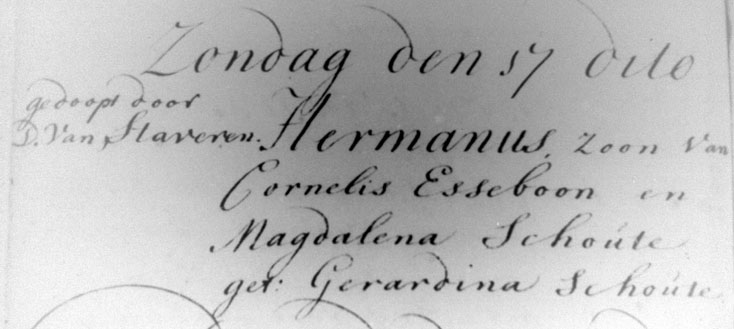 Zondag den 17 dito
gedoopt door
D. Van Staveren. Hermanus, Zoon Van
Cornelis Esseboon en
Magdalena Schoúte
get: Gerardina Schoúte